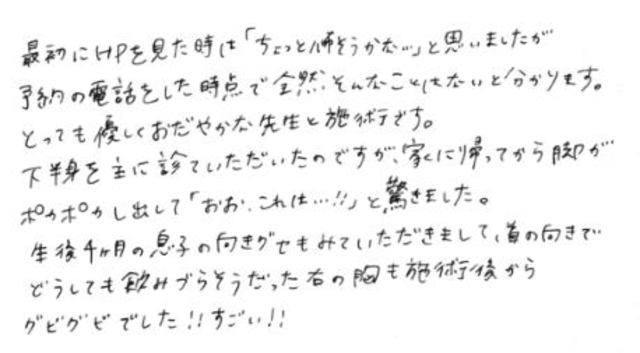 最初にHPを見た時は「ちょっと怖そうかな…」と思いましたが
予約の電話をした時点で全然そんなことはないと分かります。
とっても優しくおだやかな先生と施術です。
下半身を主に診ていただいたのですが、家に帰ってから脚が
ポカポカし出して「おお、これは…!!」と驚きました。
生後4ヶ月の息子の向きグセもみていただきまして、首の向きで
どうしても飲みづらそうだった右の胸も施術後から
グビグビでした!!すごい!!